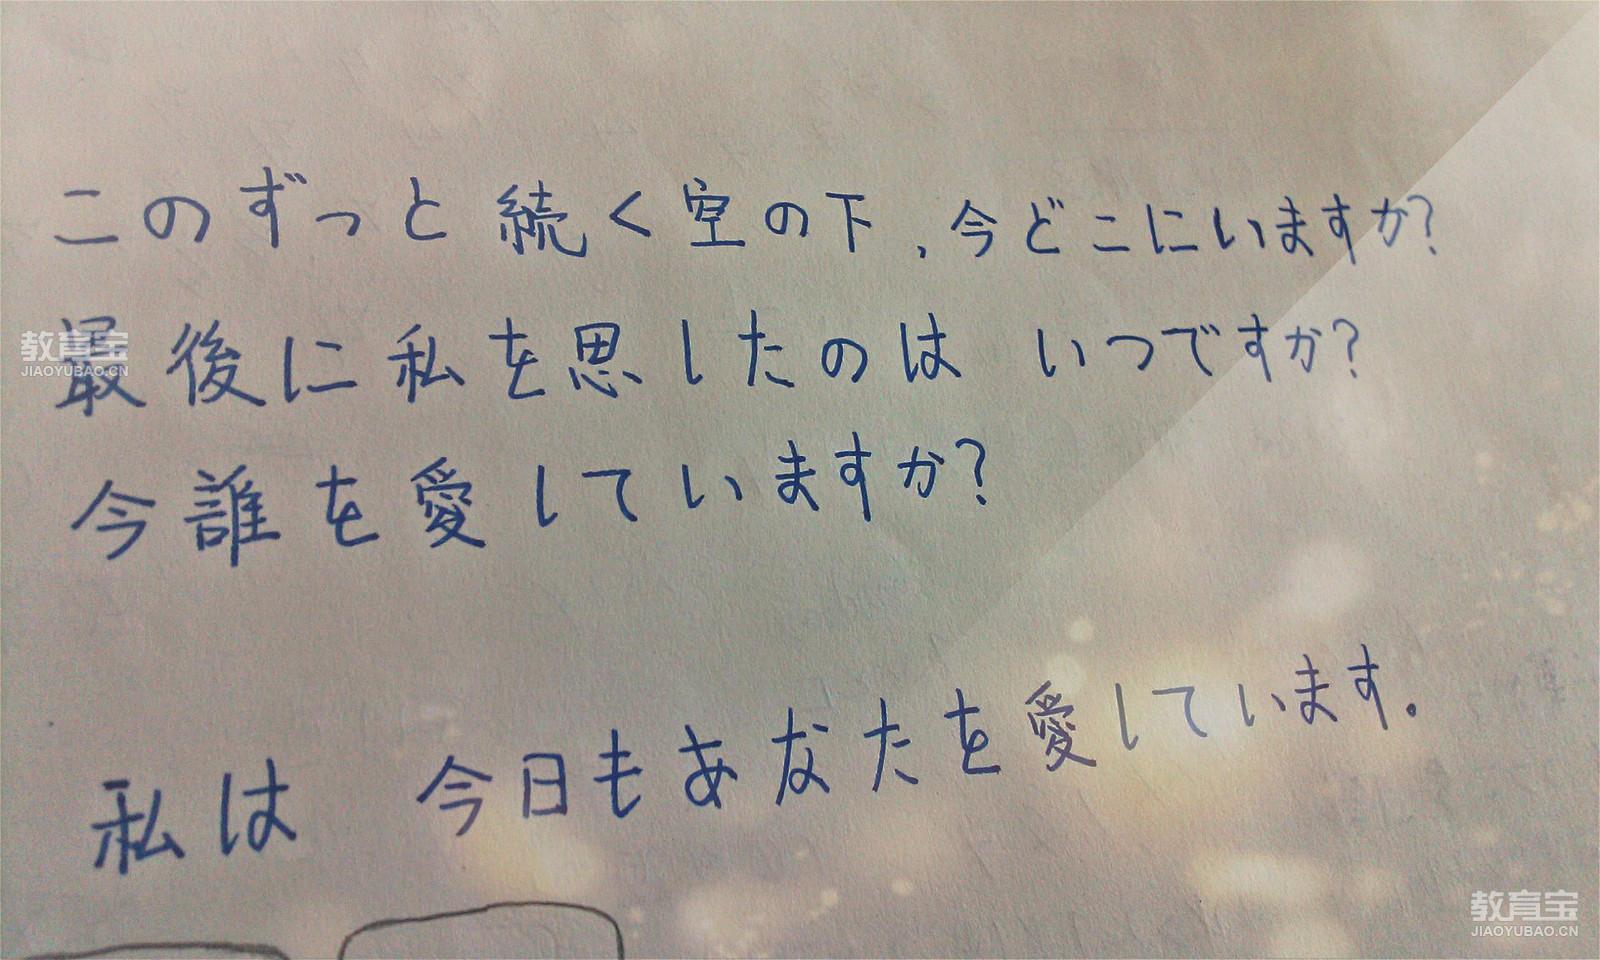 このずっと続く空の下,今どこにいますか?
最後に私を思したのは いつですか?
今誰を愛していますか?
私は 今日もあなたを愛しています。
教育宝
JIAOYUBAO.CN
教育宝
JIAOYUBAO.CN